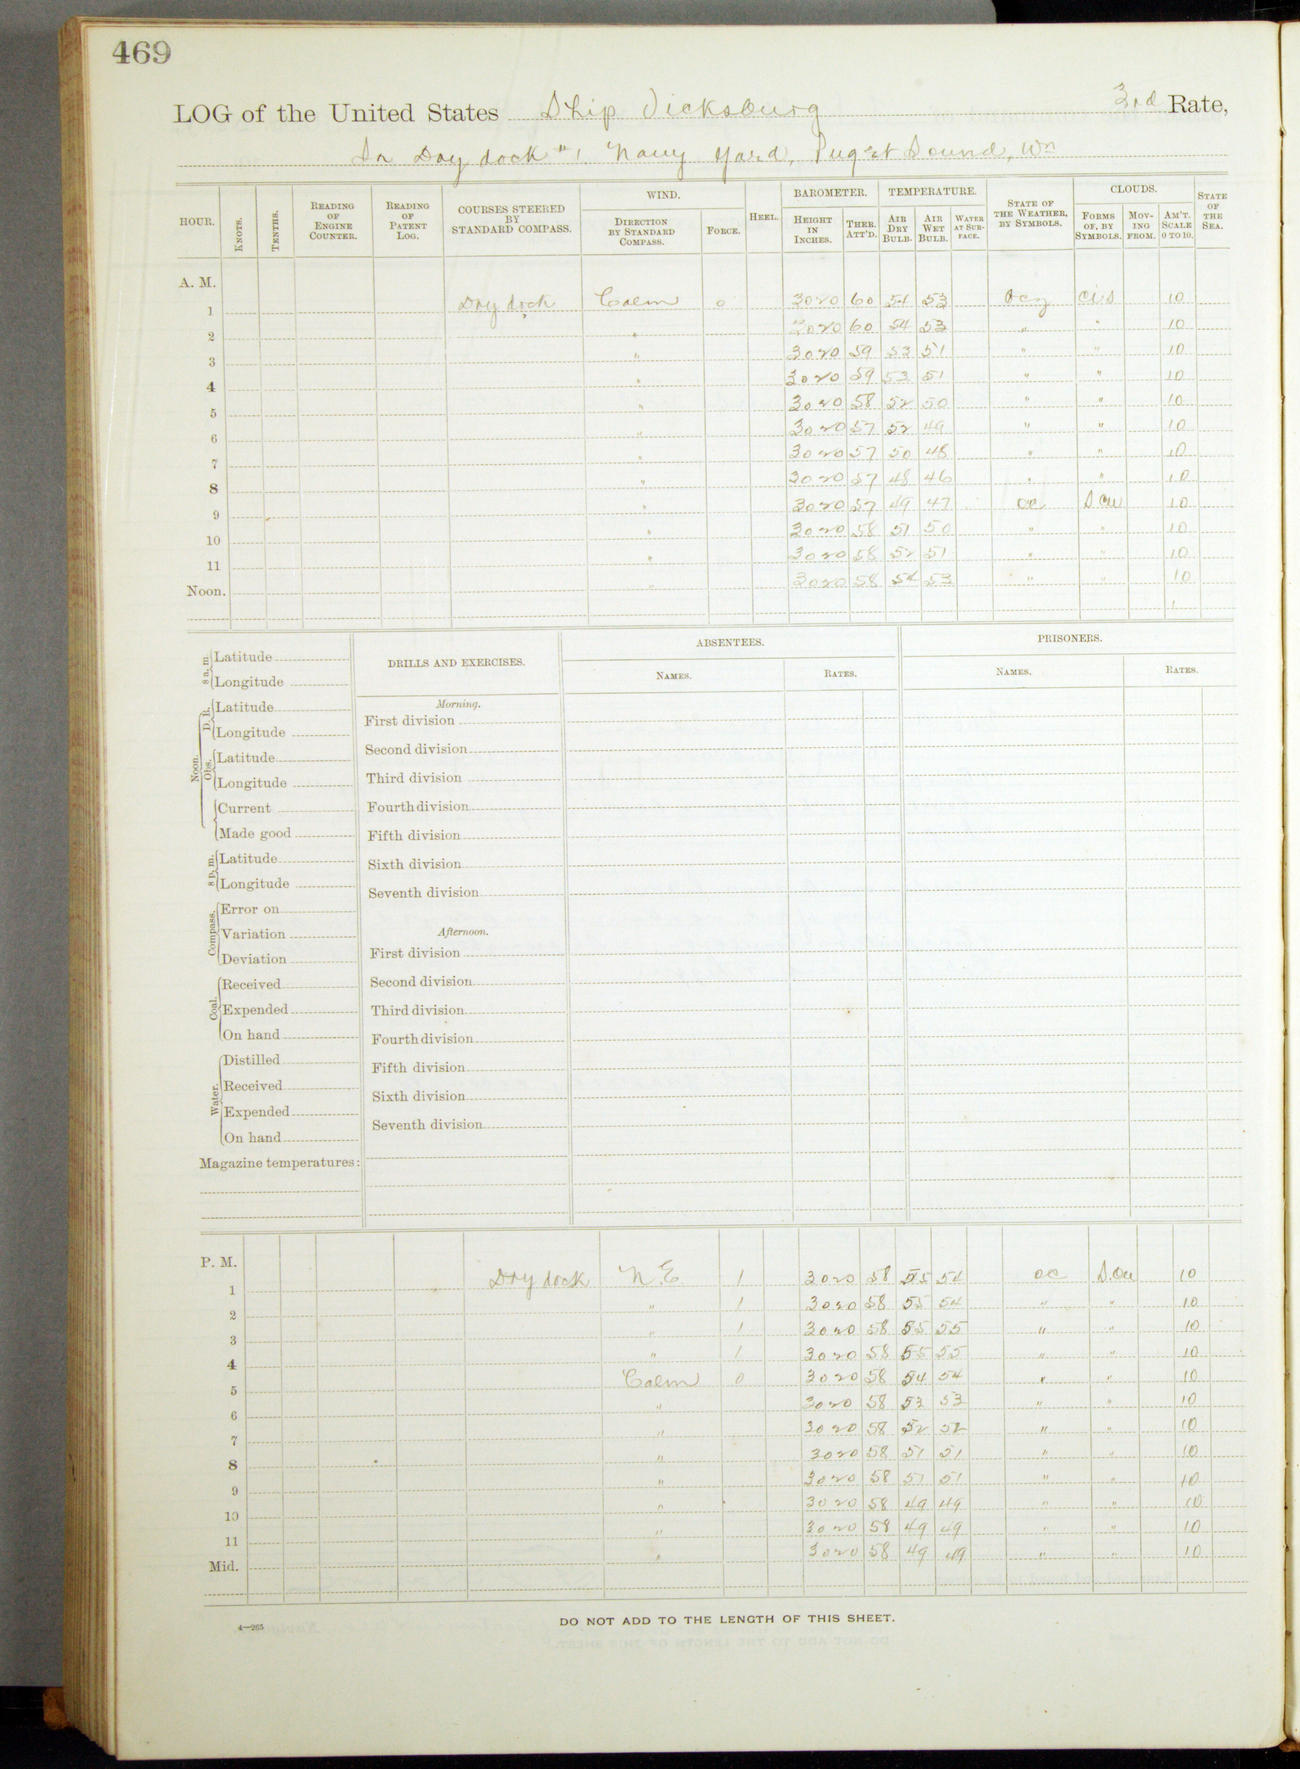 469
LOG of the United States Ship Vicksburg 3rd Rate,
In Dry dock #1 Navy Yard, Puget Sound, Wn
HOUR. KNOTS. TENTHS. READING OF ENGINE COUNTER. READING OF PATENT LOG. COURSES STEERED BY STANDARD COMPASS. WIND. DIRECTION BY STANDARD COMPASS. FORCE. HEEL. BAROMETER. HEIGHT IN INCHES. THER. ATT'D. TEMPERATURE. AIR DRY BULB. AIR WET BULB. WATER AT SURFACE. STATE OF THE WEATHER, BY SYMBOLS. CLOUDS. FORMS OF, BY SYMBOLS. MOVING FROM. AM'T. SCALE 0 TO 10. STATE OF THE SEA.
A. M.
1 Dry dock Calm 0 3020 60 54 53 10
2 " 3020 60 54 53 " " 10
3 " 3020 59 53 51 " " 10
4 " 3020 59 53 51 " " 10
5 " 3020 58 52 50 " " 10
6 " 3020 57 52 49 " " 10
7 " 3020 57 50 48 " " 10
8 " 3020 57 48 46 " " 10
9 " 3020 57 49 47 oc S.cu 10
10 " 3020 58 51 50 " " 10
11 " 3020 58 52 51 " " 10
Noon. " 3020 58 54 53 " " 10
8 a. m. Latitude
Longitude
Noon. D. R. Latitude
Longitude
Obs. Latitude
Longitude
Current
Made good
8 p. m. Latitude
Longitude
Compass. Error on
Variation
Deviation
Coal. Received
Expended
On hand
Water. Distilled
Received
Expended
On hand
Magazine temperatures:
DRILLS AND EXERCISES.
Morning.
First division
Second division
Third division
Fourth division
Fifth division
Sixth division
Seventh division
Afternoon.
First division
Second division
Third division
Fourth division
Fifth division
Sixth division
Seventh division
ABSENTEES.
NAMES. RATES.
PRISONERS.
NAMES. RATES.
P. M.
1 Dry dock N.E 1 3020 58 55 54 oc S.cu 10
2 " 1 3020 58 55 54 " " 10
3 " 1 3020 58 55 55 " " 10
4 " 1 3020 58 55 55 " " 10
5 Calm 0 3020 58 54 54 " " 10
6 " 3020 58 53 53 " " 10
7 " 3020 58 52 52 " " 10
8 " 3020 58 51 51 " " 10
9 " 3020 58 51 51 " " 10
10 " 3020 58 49 49 " " 10
11 " 3020 58 49 49 " " 10
Mid. " 3020 58 49 49 " " 10
4—265
DO NOT ADD TO THE LENGTH OF THIS SHEET.